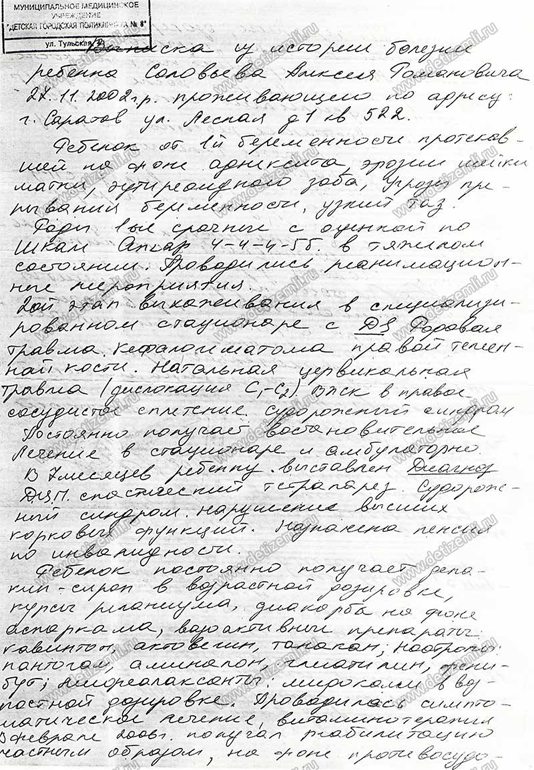 МУНИЦИПАЛЬНОЕ МЕДИЦИНСКОЕ
УЧРЕЖДЕНИЕ
"ДЕТСКАЯ ГОРОДСКАЯ ПОЛИКЛИНИКА № 8"
ул. Тульская
Выписка из истории болезни
ребенка Соловьева Алексея Романовича
27.11.2002 г.р. проживающего по адресу:
г. Саратов ул. Лесная д 1 кв 522.
Ребенок от 1й беременности протекав-
шей на фоне аднексита, эрозии шейки
матки, эутиреоидного зоба, угрозы пре-
рывания беременности, узкий таз.
Роды 1ые срочные с оценкой по
Шкале Апгар 4-4-4-5б. в тяжелом
состоянии. Проводились реанимацион-
ные мероприятия.
2ой этап выхаживания в специализи-
рованном стационаре с ДЗ Родовая
травма. Кефалогематома правой темен-
ной кости. Натальная цервикальная
травма (дислокация С1-С2) ВЖК в правое
сосудистое сплетение. Судорожный синдром
Постоянно получает востановительное
лечение в стационаре и амбулаторно.
В 7 месяцев ребенку выставлен Диагноз
ДЦП. спастический тетрапарез. Судорож-
ный синдром. Нарушение высших
корковых функций. Назначена пенсия
по инвалидности.
Ребенок постоянно получает депа-
кин-сироп в возрастной дозировке,
курсы реланиума, диакарба на фоне
аспаркама, вазоактивные препараты:
кавинтон, актовегин, танакан; ноотропы:
пантогам, аминалон, глиатилин, фени-
бут; миорелаксанты: мидокалм в воз-
растной дозировке. Проводилась симпто-
матическое лечение, витаминотерапия
В феврале 2006г. получал реабилитацию
частным образом, на фоне противосудо-
www.detizemli.ru